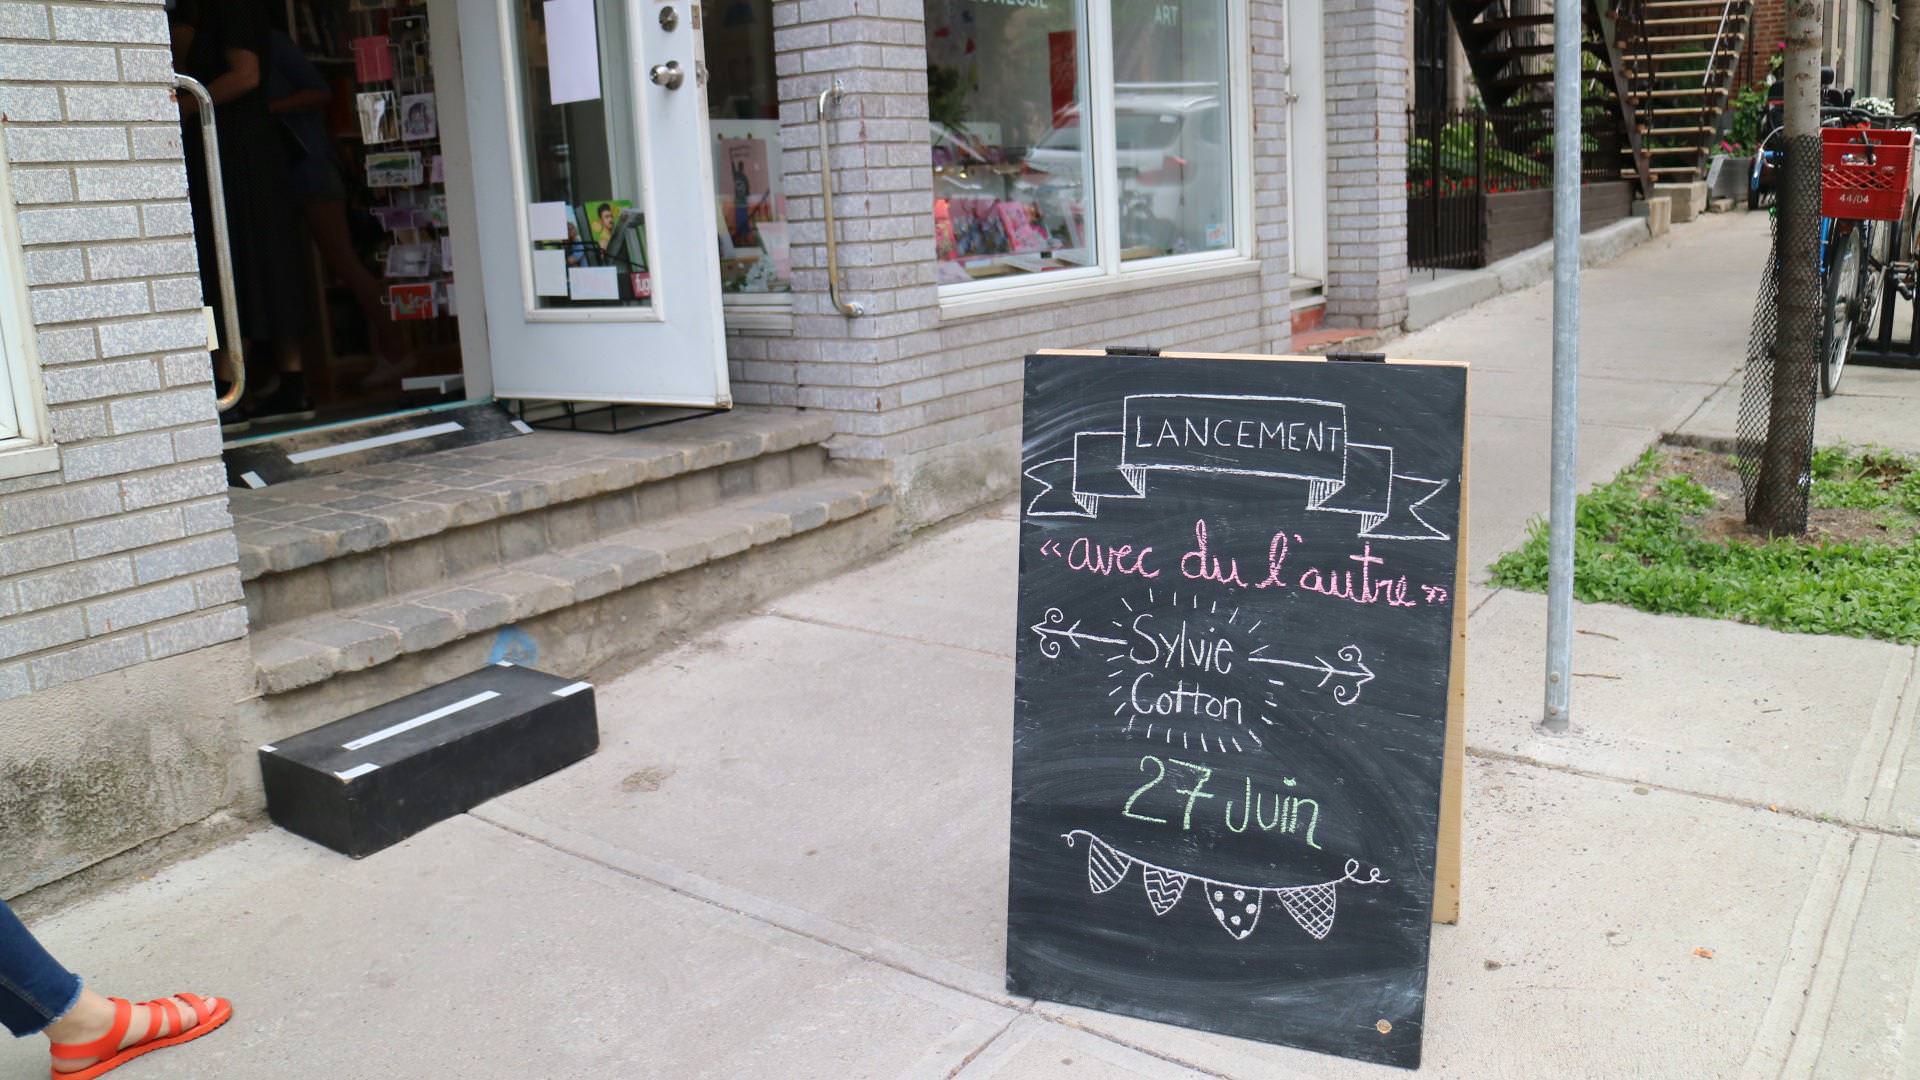 ART
44/04
LANCEMENT
«avec du l'autre»
Sylvie
Cotton
27 Juin